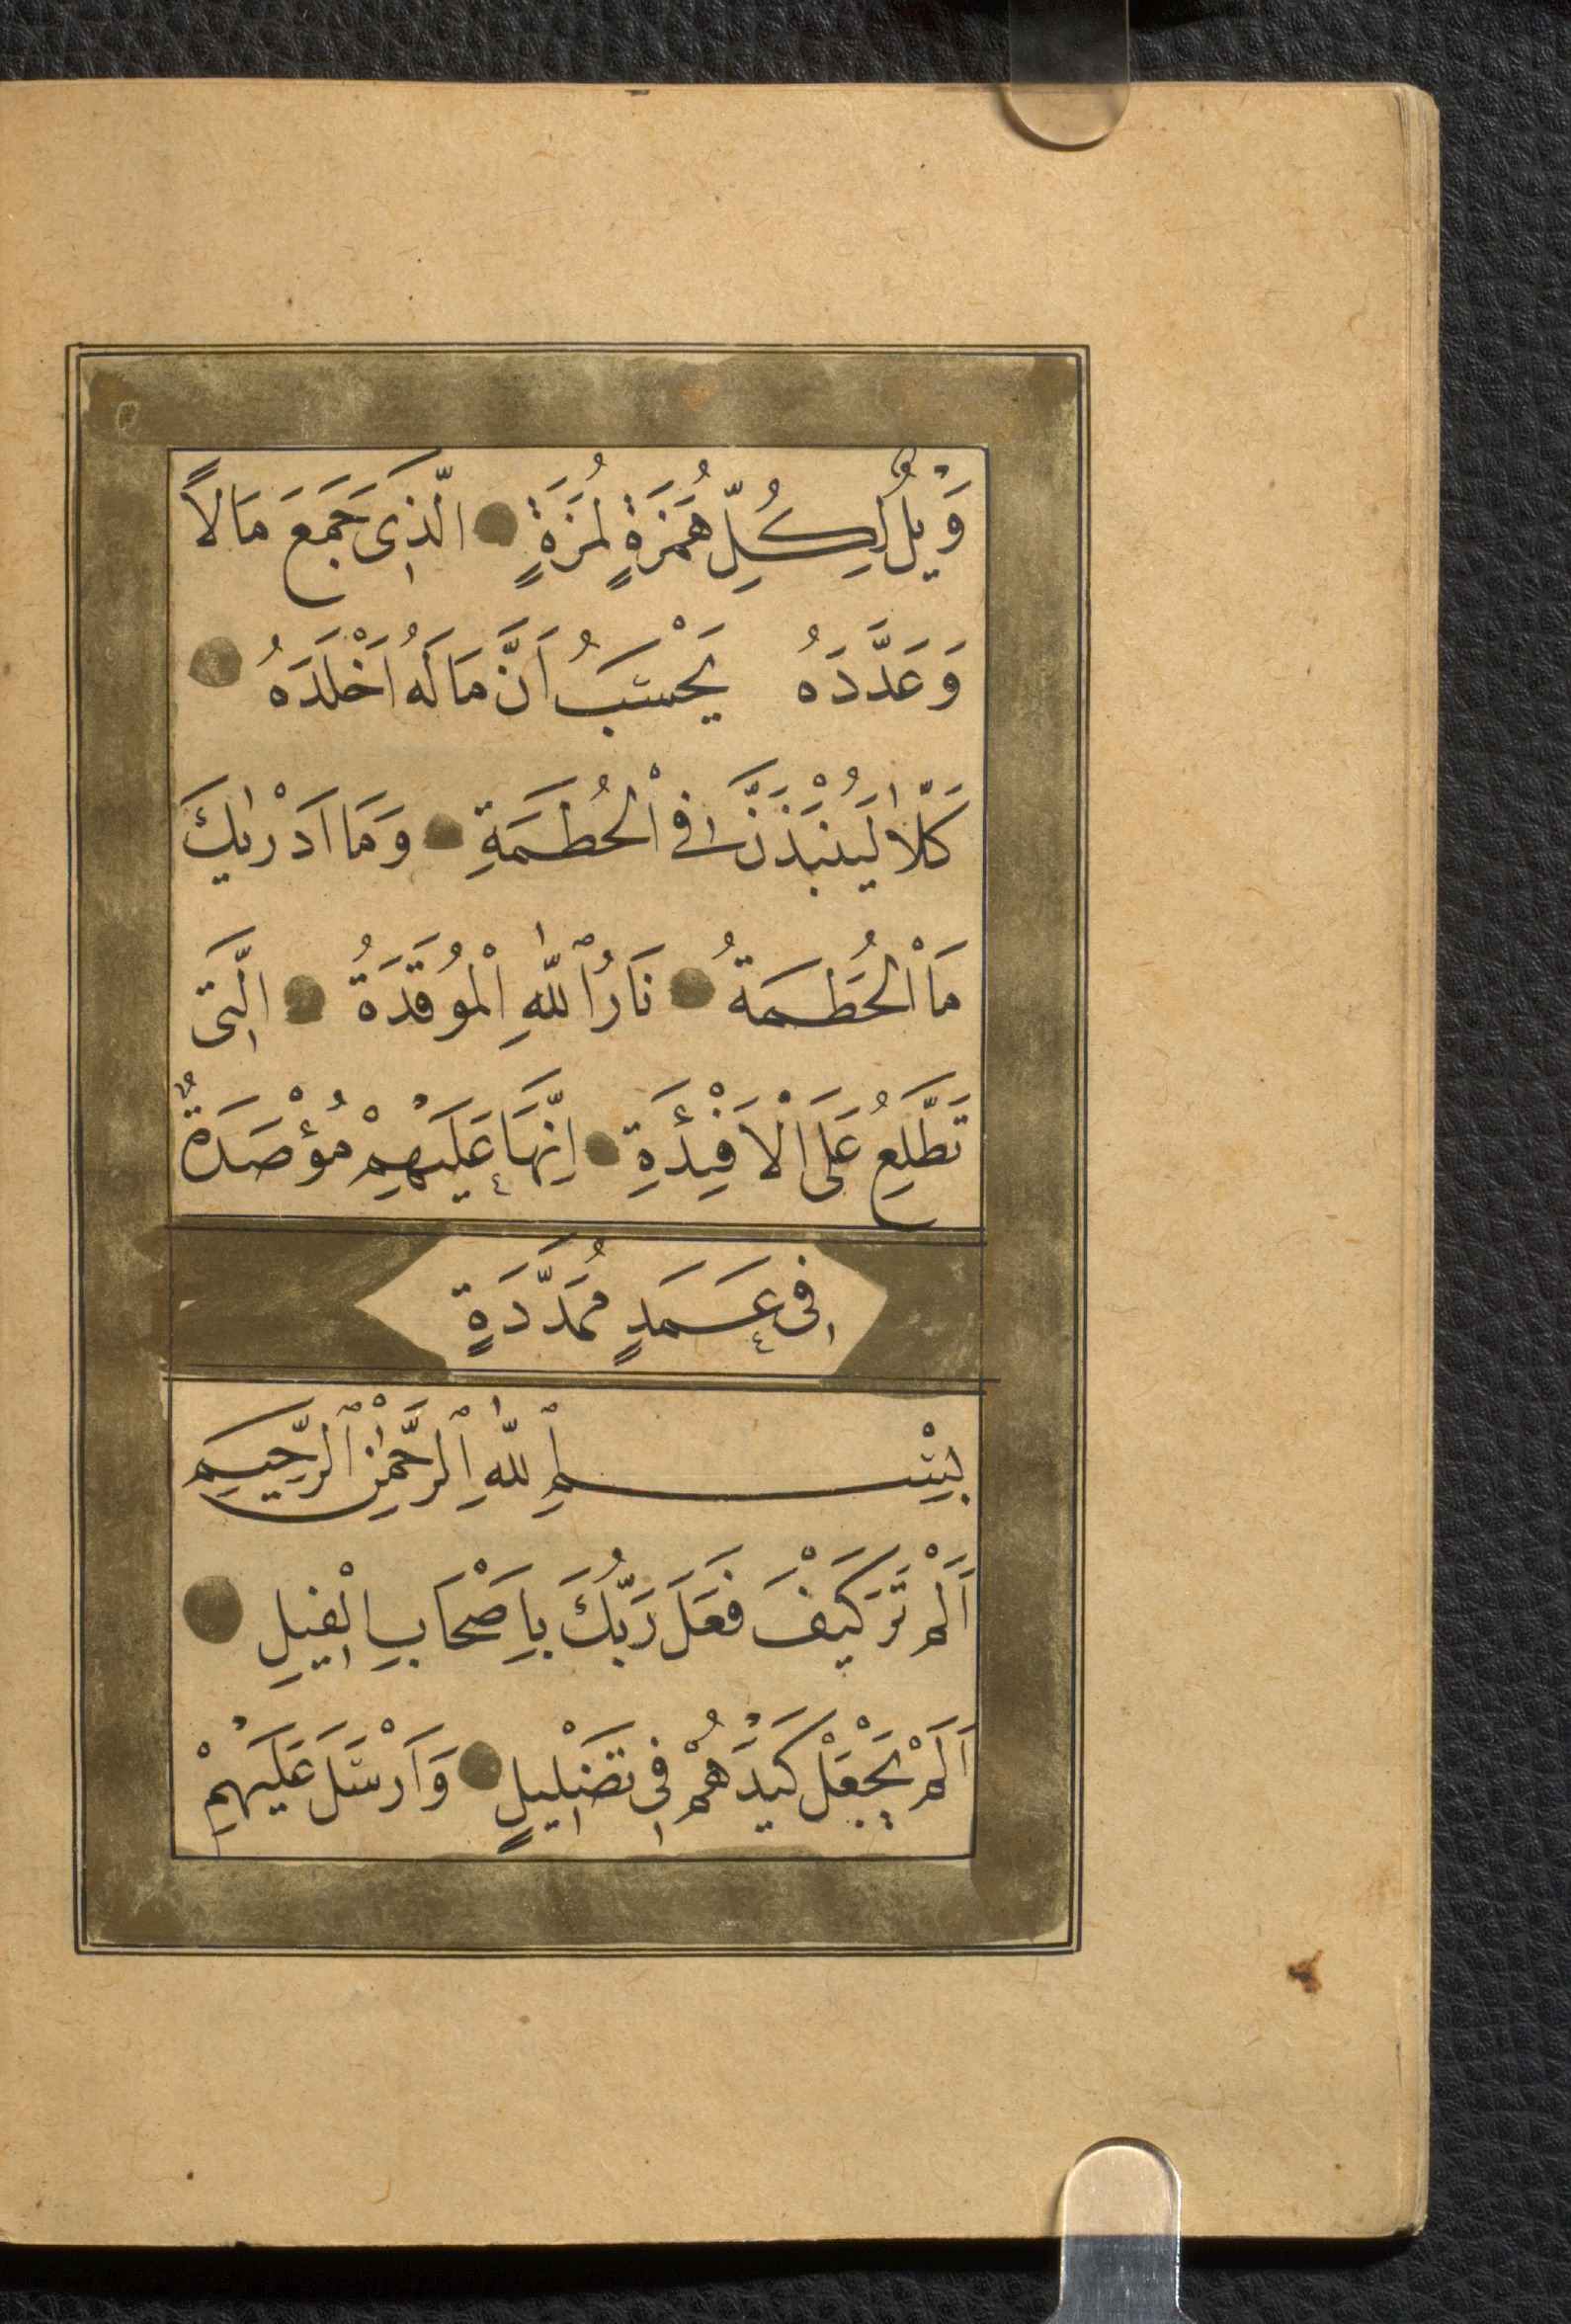 وَيْلٌ لِكُلِّ هُمَزَةٍ لُمَزَةٍ الَّذِى جَمَعَ مَالًا
وَعَدَّدَهُ يَحْسَبُ اَنَّ مَالَهُ اَخْلَدَهُ
كَلَّا لَيُنْبَذَنَّ فِى الْحُطَمَةِ وَمَا اَدْرٰيكَ
مَا الْحُطَمَةُ نَارُ اللّٰهِ الْمُوقَدَةُ الَّتِى
تَطَّلِعُ عَلَى الْاَفْئِدَةِ اِنَّهَا عَلَيْهِمْ مُؤْصَدَةٌ
فِى عَمَدٍ مُمَدَّدَةٍ
بِسْمِ اللّٰهِ الرَّحْمٰنِ الرَّحِيمِ
اَلَمْ تَرَ كَيْفَ فَعَلَ رَبُّكَ بِاَصْحَابِ الْفِيلِ
اَلَمْ يَجْعَلْ كَيْدَهُمْ فِى تَضْلِيلٍ وَاَرْسَلَ عَلَيْهِمْ